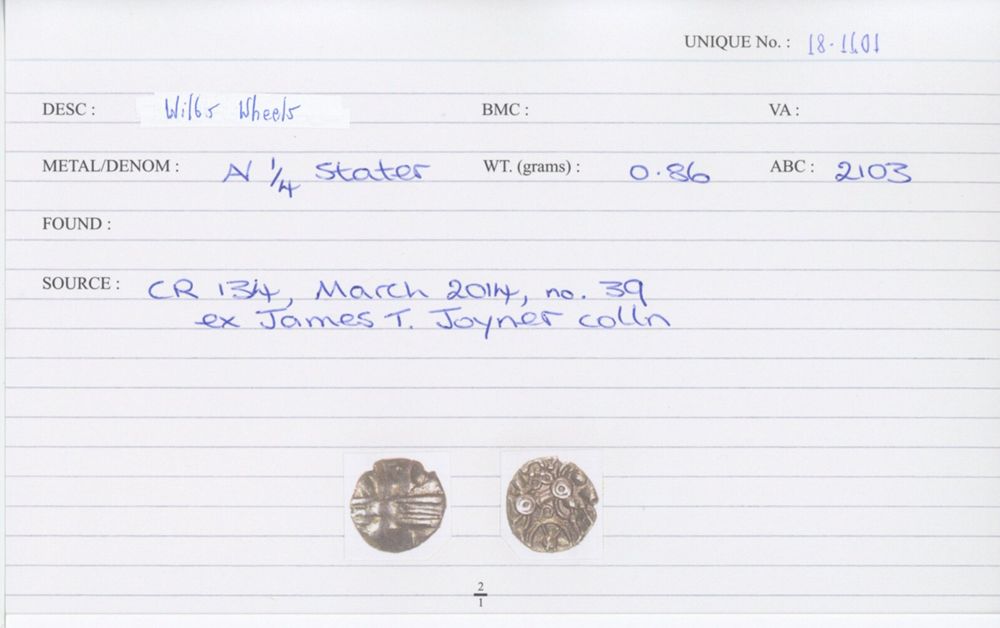 UNIQUE No. : 18-1601
DESC : Wilbs Wheels BMC : VA :
METAL/DENOM : N 1/4 Stater WT. (grams) : 0.86 ABC : 2103
FOUND :
SOURCE : CR 134, March 2014, no. 39
ex James T. Joyner colln
2/1